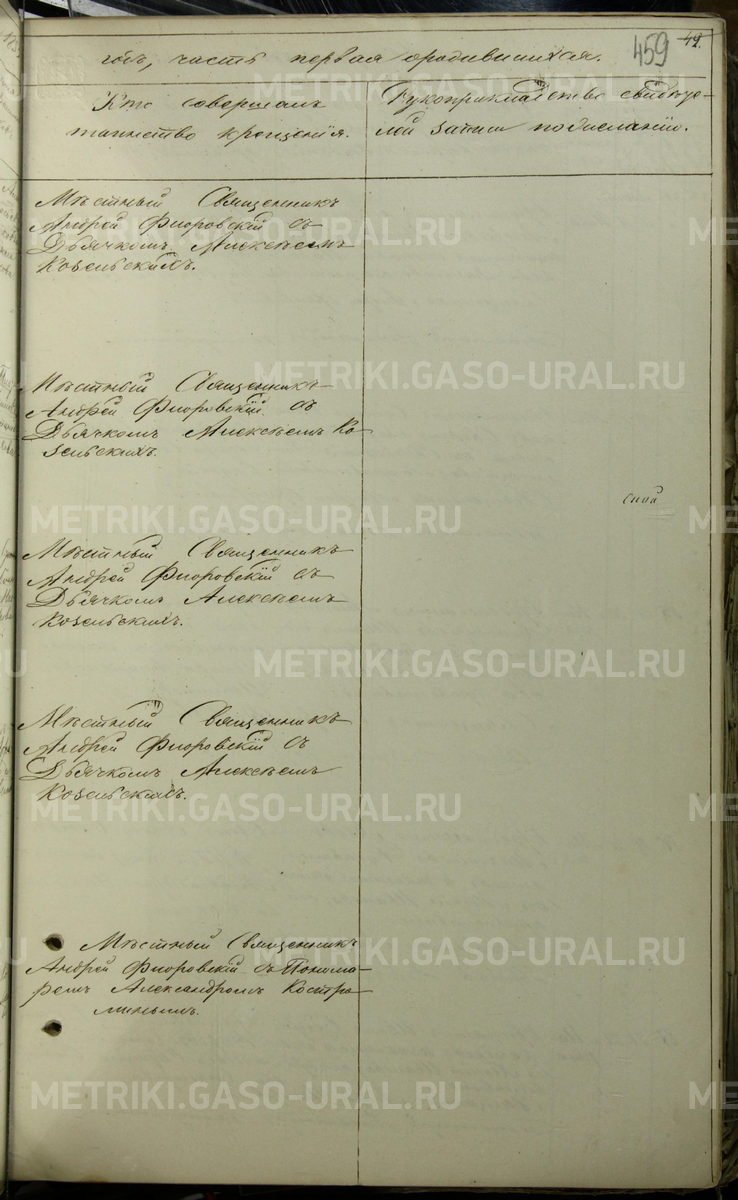 459 42.
годъ, часть первая о родившихся.
Кто совершалъ
таинство крещенія.
Рукоприкладство свидѣте-
лей записи по желанію.
Мѣстный Священникъ
Андрей Флоровскій съ
Дьячкомъ Алексѣемъ
Козельскихъ.
Мѣстный Священникъ
Андрей Флоровскій съ
Дьячкомъ Алексѣемъ Ко-
зельскихъ.
Мѣстный Священникъ
Андрей Флоровскій съ
Дьячкомъ Алексѣемъ
Козельскихъ.
Мѣстный Священникъ
Андрей Флоровскій съ
Дьячкомъ Алексѣемъ
Козельскихъ.
Мѣстный Священникъ
Андрей Флоровскій съ Понома-
ремъ Александромъ Костро-
минымъ.
METRIKI.GASO-URAL.RU